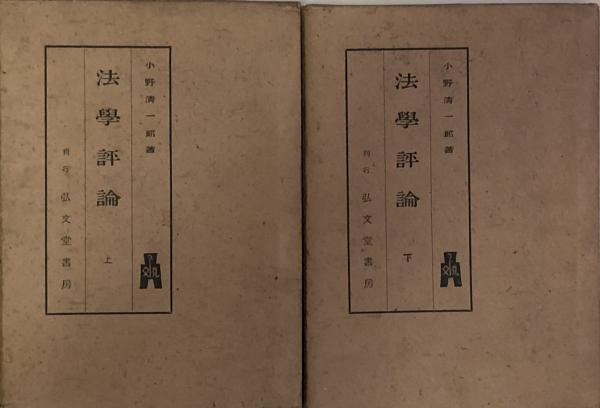 小野清一郎著
法學評論 上
刊行 弘文堂書房
小野清一郎著
法學評論 下
刊行 弘文堂書房